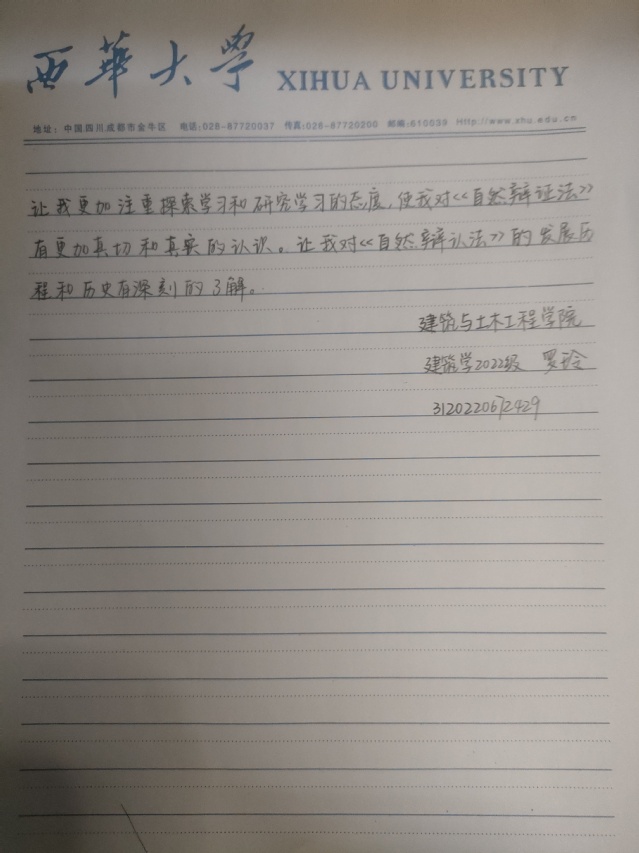 西華大学 XIHUA UNIVERSITY
地址：中国四川成都市金牛区 电话:028-87720037 传真:028-87720200 邮编:610039 Http://www.xhu.edu.cn
让我更加注重探索学习和研究学习的态度，使我对<<自然辩证法>>
有更加真切和真实的认识。让我对<<自然辩认法>>的发展历
程和历史有深刻的了解。
建筑与土木工程学院
建筑学2022级 罗玲
3120220672429